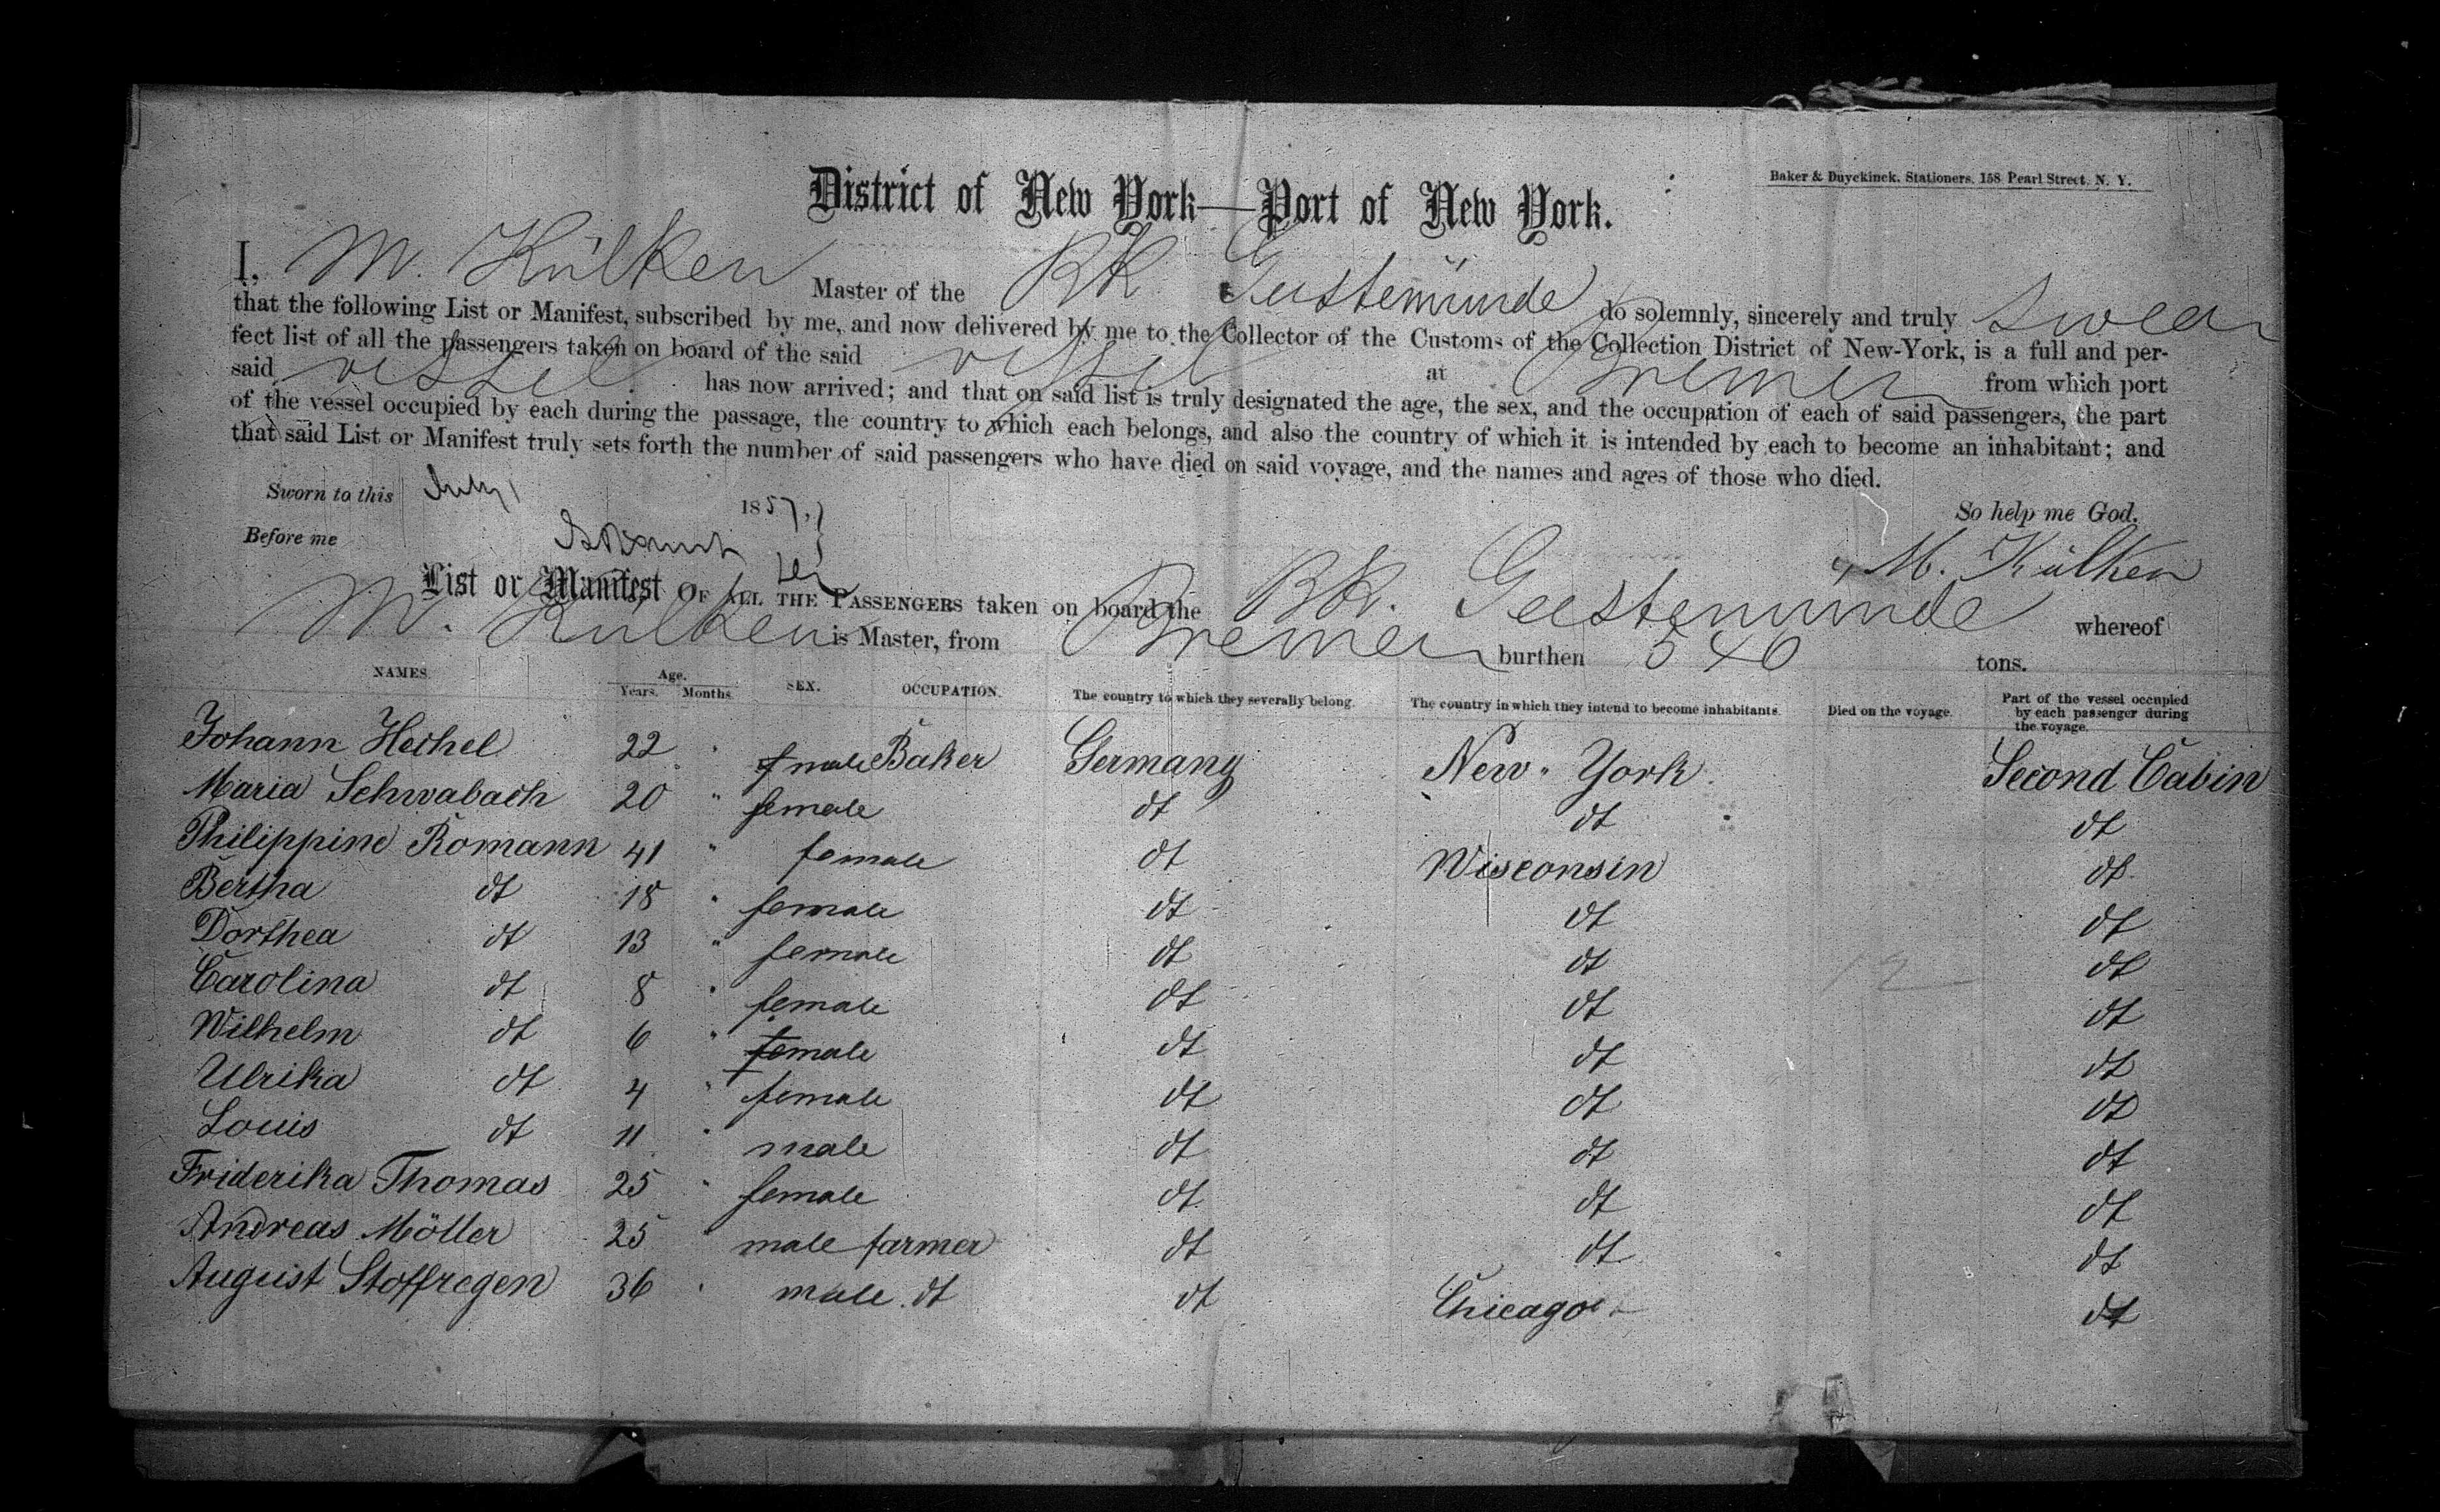 Baker & Duyckinck, Stationers, 158 Pearl Street, N. Y.
District of New York—Port of New York.
I, M. Külken Master of the BK Geestemünde do solemnly, sincerely and truly swear
that the following List or Manifest, subscribed by me, and now delivered by me to the Collector of the Customs of the Collection District of New-York, is a full and per-
fect list of all the passengers taken on board of the said vessel at Bremen from which port
said vessel has now arrived; and that on said list is truly designated the age, the sex, and the occupation of each of said passengers, the part
of the vessel occupied by each during the passage, the country to which each belongs, and also the country of which it is intended by each to become an inhabitant; and
that said List or Manifest truly sets forth the number of said passengers who have died on said voyage, and the names and ages of those who died.
Sworn to this July 1 1857, So help me God.
Before me M. Külken
List or Manifest OF ALL THE PASSENGERS taken on board the BK. Geestemunde whereof
M. Kulken is Master, from Bremen burthen 546 tons.
NAMES. Age. Years. Months. SEX. OCCUPATION. The country to which they severally belong. The country in which they intend to become inhabitants. Died on the voyage. Part of the vessel occupied by each passenger during the voyage.
Johann Hechel 22 " male Baker Germany New-York Second Cabin
Maria Schwabach 20 " female dt dt dt
Philippine Romann 41 " female dt Wisconsin dt
Bertha dt 18 " female dt dt dt
Dorthea dt 13 " female dt dt dt
Carolina dt 8 " female dt dt dt
Wilhelm dt 6 " female dt dt dt
Ulrika dt 4 " female dt dt dt
Louis dt 11 " male dt dt dt
Friderika Thomas 25 " female dt dt dt
Andreas Möller 25 male farmer dt dt dt
August Stoffregen 36 " male dt dt Chicago dt
12